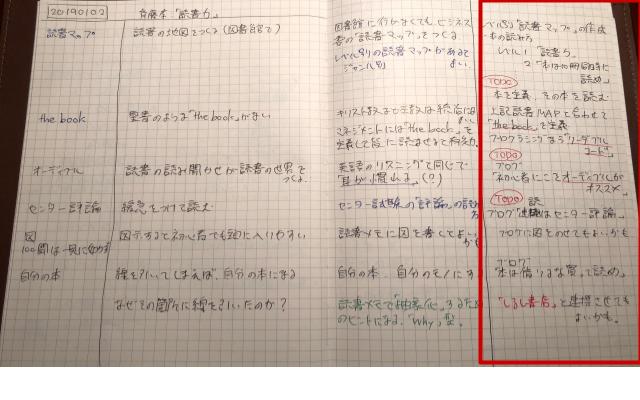 20190102
斉藤本「読書力」
読書マップ
読書の地図をつくる(図書館で)
図書館に行かなくても、ビジネス
書の"読書マップ"をつくる
レベル別の読書マップがあるとよい
ジャンル別
the book
聖書のような「the book」がない
キリスト教など宗教は統治に
マネジメントには「the book」を
定義して皆に読ませると
オーディブル
読書の読み聞かせが読書の世界を
つくる
英語のリスニングと同じで
「耳が慣れる」(?)
センター評論
緩急をつけて読む
センター試験の「評論」の読み方
図
図示すると初心者でも頭に入りやすい
読書メモに図を書くとよい
かも
自分の本
線を引いてしまえば、自分の本になる
自分の本、自分のモノにす
なぜその箇所に線を引いたのか?
読書メモで「抽象化」するため
のヒントになる、「Why」型
レベル別「読書マップ」の作成
本の読み方
レベル1「読書力」
2「本は10冊同時に
読め」
TODO
本を定義、その本を読む
上記読書MAPと合わせて
「the book」を定義
プログラミングなら「リーダブル
コード」
TODO
ブログ
「初心者にこそオーディブルが
オススメ」
TODO
ブログ
はセンター評論」
ブログに図をのせてもよいかも
ブログ
本は借りるな買って読め」
「しるし書店」と連携させても
よいかも。